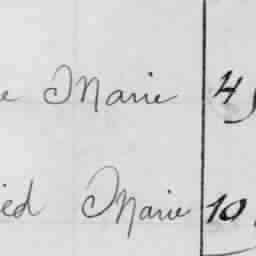 e Marie 4
ied Marie 10